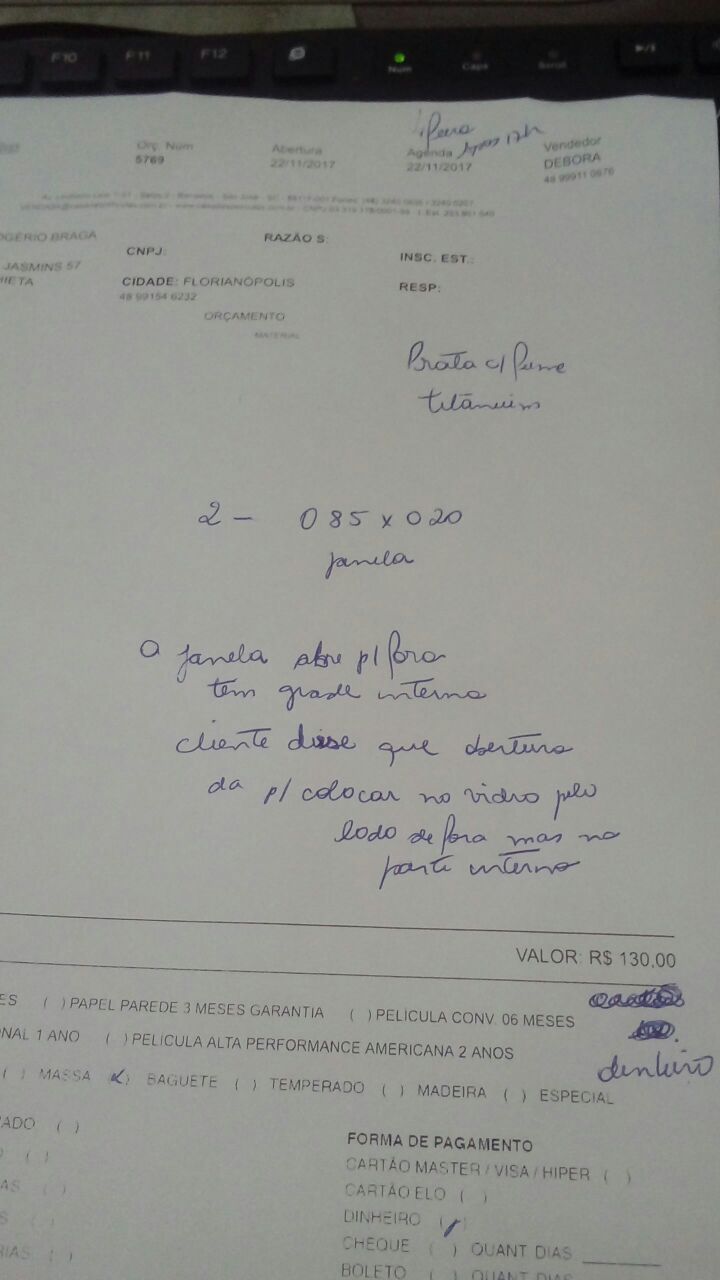 F10 F11 F12 Num Caps Scroll
após 12h
Orç. Num Abertura Agenda Vendedor
5769 22/11/2017 22/11/2017 DEBORA
48 99911 0676
OGERIO BRAGA RAZÃO S:
CNPJ: INSC. EST.:
JASMINS 57 CIDADE: FLORIANÓPOLIS RESP:
IETA 48 99154 6232
ORÇAMENTO
MATERIAL
Prata c/
2 - 085 x 020
janela
a janela abre p/ fora
tem grade interna
cliente disse que abertura
da p/ colocar no vidro pelo
lado de fora mas na
parte interna
VALOR: R$ 130,00
ES ( ) PAPEL PAREDE 3 MESES GARANTIA ( ) PELICULA CONV. 06 MESES
NAL 1 ANO ( ) PELICULA ALTA PERFORMANCE AMERICANA 2 ANOS
dinheiro
( ) MASSA ( ) BAGUETE ( ) TEMPERADO ( ) MADEIRA ( ) ESPECIAL
ADO ( )
( )
AS ( )
S ( )
RIAS ( )
FORMA DE PAGAMENTO
CARTÃO MASTER / VISA / HIPER ( )
CARTÃO ELO ( )
DINHEIRO ( )
CHEQUE ( ) QUANT DIAS
BOLETO ( ) QUANT DIAS